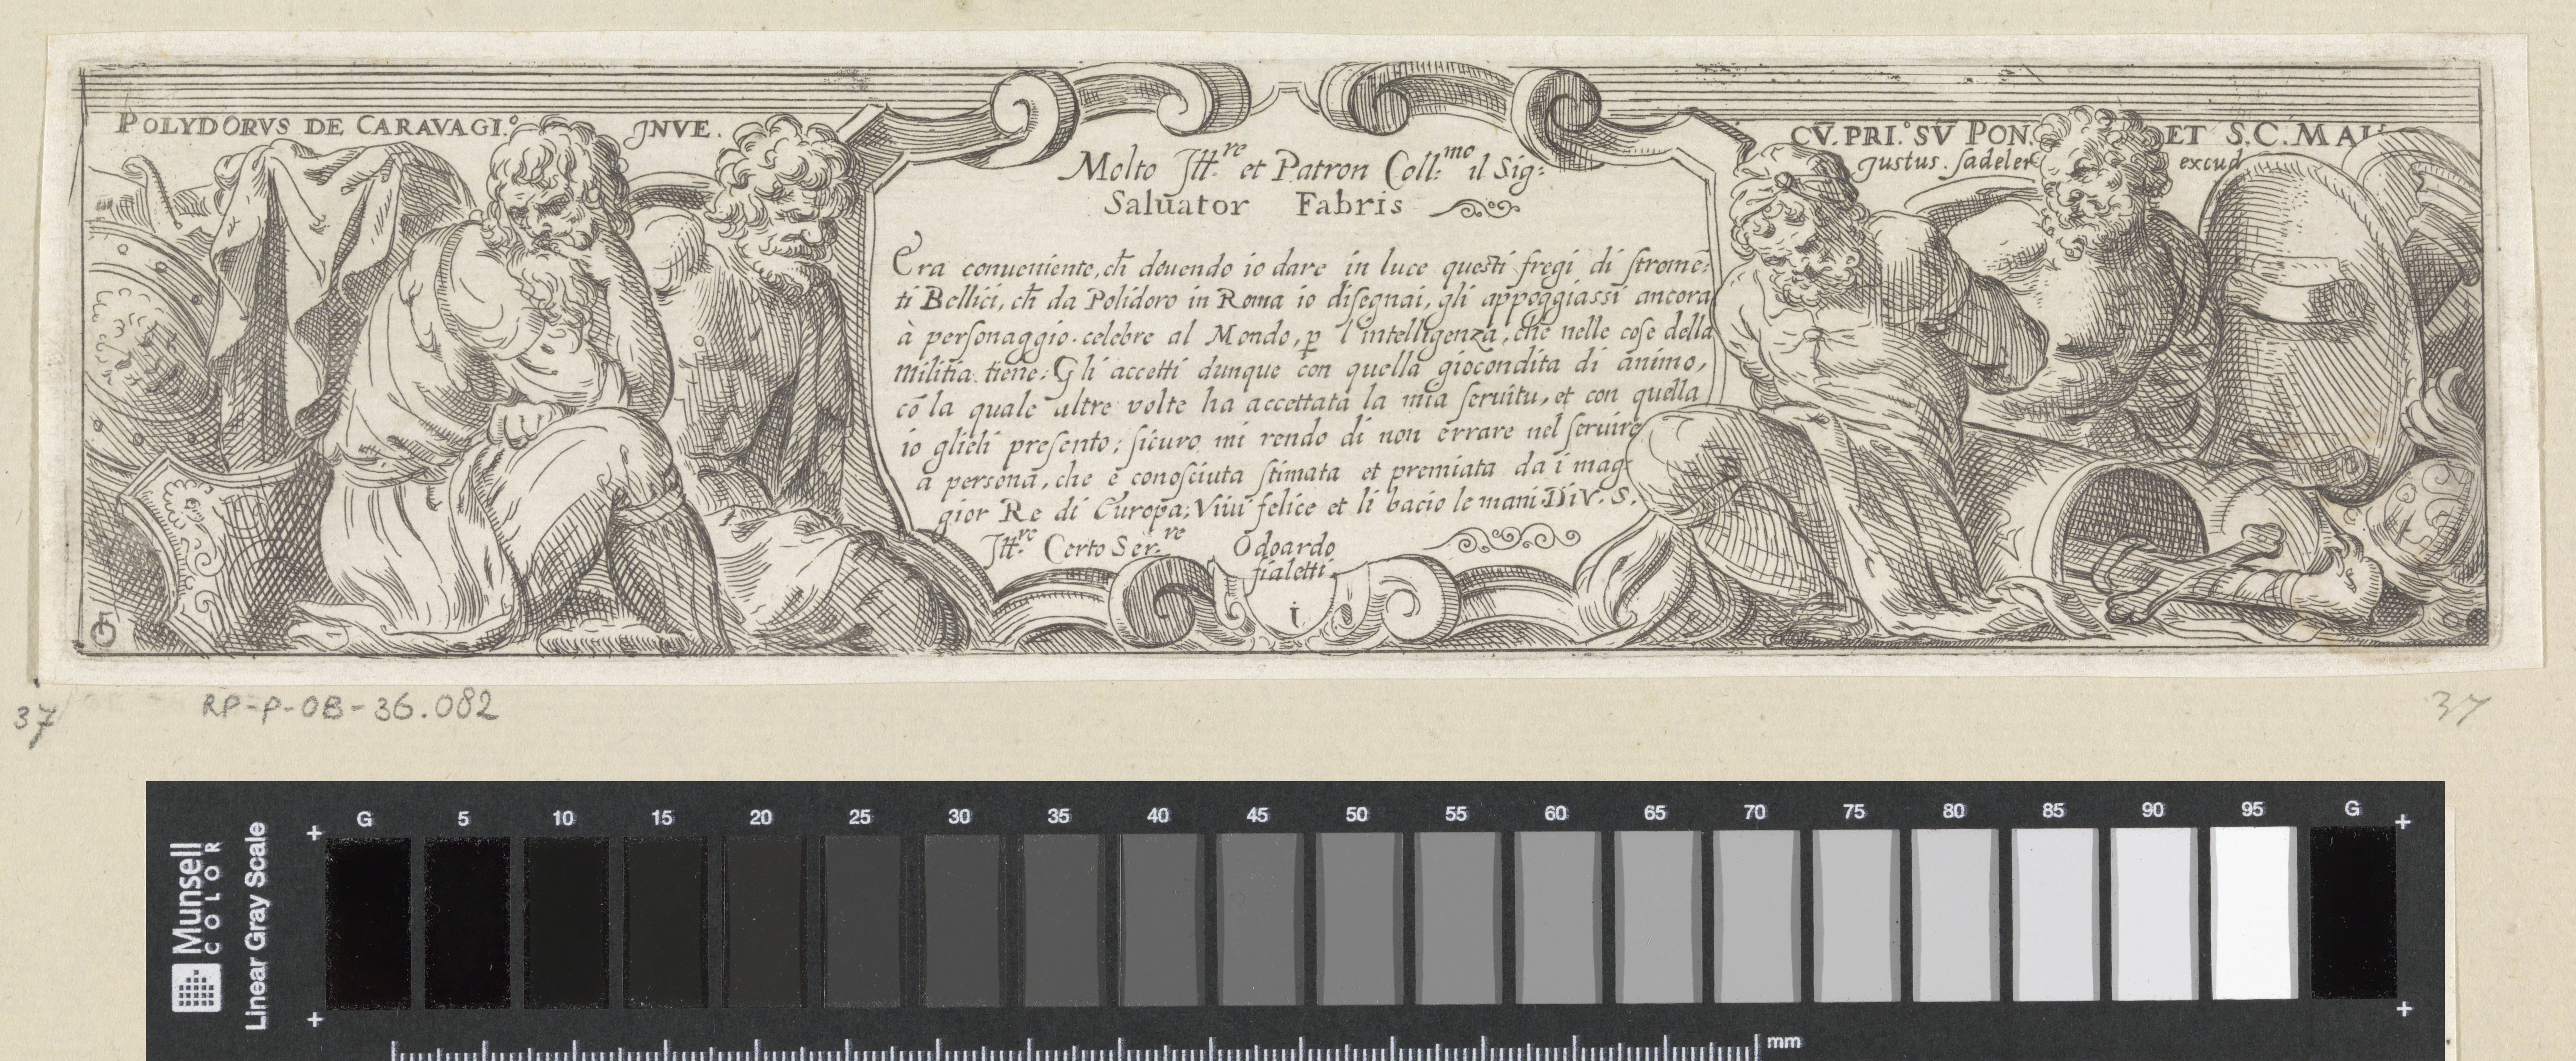 POLYDORVS DE CARAVAGI.º JNVE.
CV̄. PRI.º SV̄ PON. ET S.C. MAI
Justus. sadeler excud
Molto Jll.re et Patron Coll:mo il Sig:
Saluator Fabris
Era conueniente, ch̄ douendo io dare in luce questi fregi di stromē:
ti Bellici, ch̄ da Polidoro in Roma io disegnai, gli appoggiassi ancora
à personaggio celebre al Mondo, p l'intelligenza, che nelle cose della
militia tiene: Gli accetti dunque con quella giocondita di animo,
cō la quale altre volte ha accettata la mia seruitu, et con quella
io glieli presento; sicuro mi rendo di non errare nel seruire
a persona, che è conosciuta stimata et premiata da i mag:
gior Re di Europa; Viui felice et li bacio le mani. Di V. S.
Jll.re Certo Ser.re Odoardo
fialetti
i
37
RP-P-OB-36.082
37
Munsell
COLOR
Linear Gray Scale
G 5 10 15 20 25 30 35 40 45 50 55 60 65 70 75 80 85 90 95 G
mm